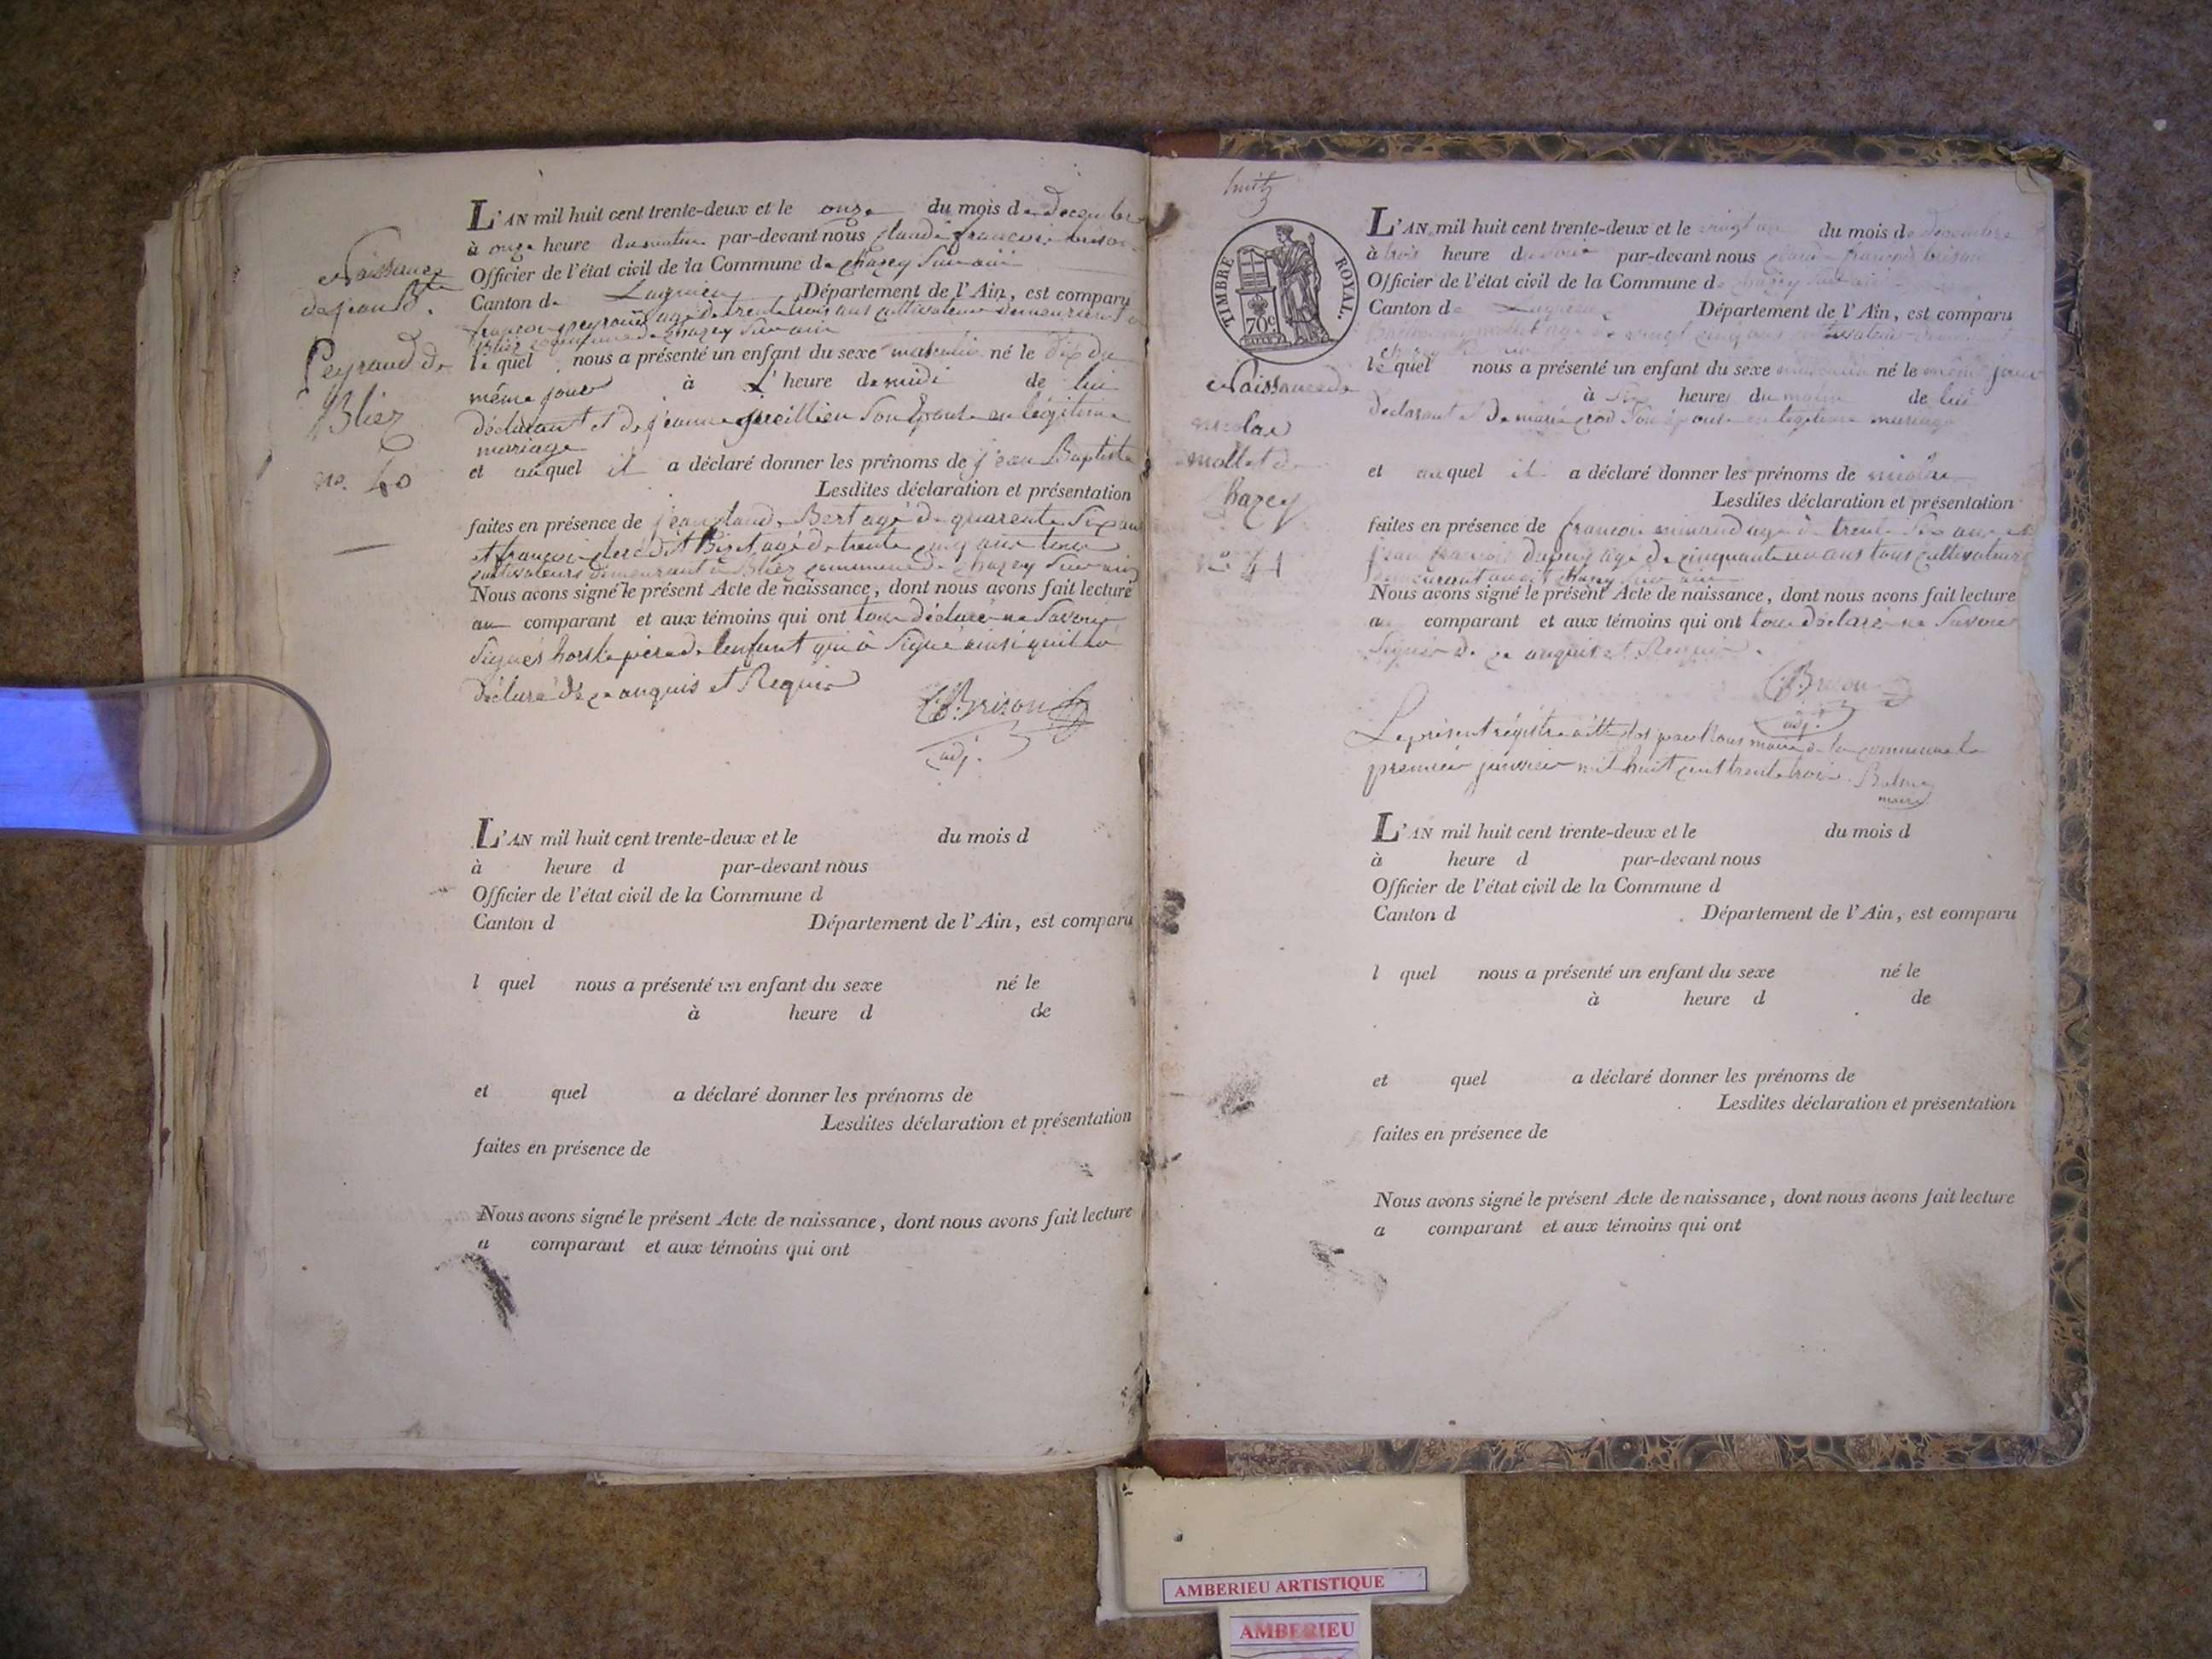 Naissance
de jean Bte
Peyraud de
Bliez
no. 40
L'AN mil huit cent trente-deux et le onze du mois de decembre
à onze heure du matin par-devant nous claude françois brison
Officier de l'état civil de la Commune de chazey Sur ain
Canton de Lagnieu Département de l'Ain, est comparu
françois peyraud agé de trente trois ans cultivateur demeurant a
Bliez commune de chazey Sur ain
le quel nous a présenté un enfant du sexe masculin né le dix du
même jour à heure de midi de lui
déclarant et de jeanne Son Epouse en légitime
mariage
et auquel il a déclaré donner les prénoms de jean Baptiste
Lesdites déclaration et présentation
faites en présence de jean claude Bert agé de quarente Six ans
et françois dit agé de trente cinq ans tous
cultivateurs demeurant a Bliez commune de chazey Sur ain
Nous avons signé le présent Acte de naissance, dont nous avons fait lecture
au comparant et aux témoins qui ont tous déclaré ne Savoir
Signer hors le père de lenfant qui à Signé ainsi quil la
déclaré de ce anquis et Requis
Brison
adj.
L'AN mil huit cent trente-deux et le du mois d
à heure d par-devant nous
Officier de l'état civil de la Commune d
Canton d Département de l'Ain, est comparu
l quel nous a présenté un enfant du sexe né le
à heure d de
et quel a déclaré donner les prénoms de
Lesdites déclaration et présentation
faites en présence de
Nous avons signé le présent Acte de naissance, dont nous avons fait lecture
a comparant et aux témoins qui ont
huit
TIMBRE ROYAL.
70c
Naissance de
nicolas
mollet de
chazey
no 41
L'AN mil huit cent trente-deux et le vingt un du mois de decembre
à trois heure du soir par-devant nous claude françois brison
Officier de l'état civil de la Commune de chazey Sur ain
Canton de Lagnieu Département de l'Ain, est comparu
mollet agé de vingt cinq ans cultivateur
chazey Sur ain
le quel nous a présenté un enfant du sexe masculin né le même jour
à Six heures du matin de lui
déclarant et de marie Son épouse en légitime mariage
et auquel il a déclaré donner les prénoms de nicolas
Lesdites déclaration et présentation
faites en présence de françois agé de trente Six ans et
jean françois dupuy agé de cinquante un ans tous cultivateurs
demeurant audit chazey Sur ain
Nous avons signé le présent Acte de naissance, dont nous avons fait lecture
au comparant et aux témoins qui ont tous déclaré ne Savoir
Signer de ce anquis et Requis.
Brison
adj.
Le présent régistre a été clos par Nous maire de la commune le
premier janvier mil huit cent trente trois. Balme
maire
L'AN mil huit cent trente-deux et le du mois d
à heure d par-devant nous
Officier de l'état civil de la Commune d
Canton d Département de l'Ain, est comparu
l quel nous a présenté un enfant du sexe né le
à heure d de
et quel a déclaré donner les prénoms de
Lesdites déclaration et présentation
faites en présence de
Nous avons signé le présent Acte de naissance, dont nous avons fait lecture
a comparant et aux témoins qui ont
AMBERIEU ARTISTIQUE
AMBERIEU